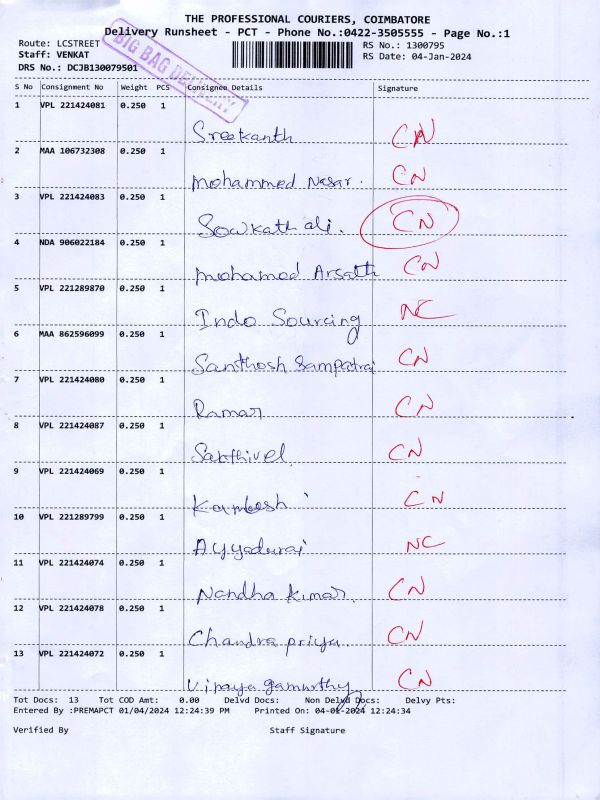 THE PROFESSIONAL COURIERS, COIMBATORE
Delivery Runsheet - PCT - Phone No.:0422-3505555 - Page No.:1
Route: LCSTREET RS No.: 1300795
Staff: VENKAT RS Date: 04-Jan-2024
DRS No.: DCJB130079501
BIG BAG DELIVERY
S No Consignment No Weight PCS Consignee Details Signature
1 VPL 221424081 0.250 1
Sreekanth CN
2 MAA 106732308 0.250 1
Mohammed Nasar. CN
3 VPL 221424083 0.250 1
Sowkath ali. CN
4 NDA 906022184 0.250 1
Mohamed Arsath CN
5 VPL 221289870 0.250 1
Indo Sourcing NC
6 MAA 862596099 0.250 1
Santhosh Sampatraj CN
7 VPL 221424080 0.250 1
Ramar CN
8 VPL 221424087 0.250 1
Sakthivel. CN
9 VPL 221424069 0.250 1
CN
10 VPL 221289799 0.250 1
Ayyadurai NC
11 VPL 221424074 0.250 1
Nandha Kumar. CN
12 VPL 221424078 0.250 1
Chandra priya. CN
13 VPL 221424072 0.250 1
CN
Tot Docs: 13 Tot COD Amt: 0.00 Delvd Docs: Non Delvd Docs: Delvy Pts:
Entered By :PREMAPCT 01/04/2024 12:24:39 PM Printed On: 04-01-2024 12:24:34
Verified By Staff Signature